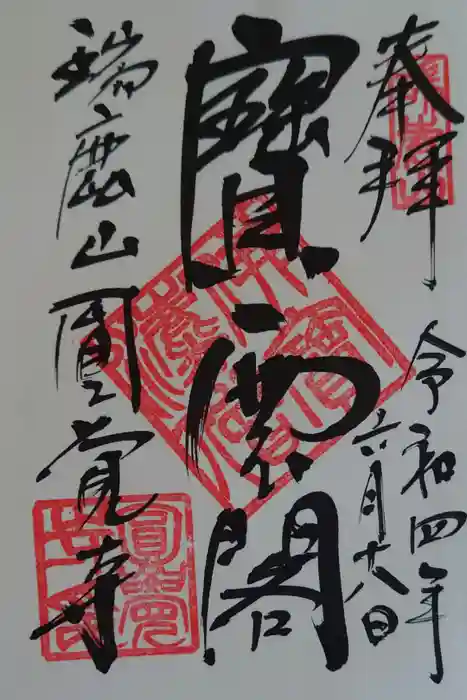 奉拝
令和四年
六月十八日
寶雲閣
瑞鹿山圓覚寺